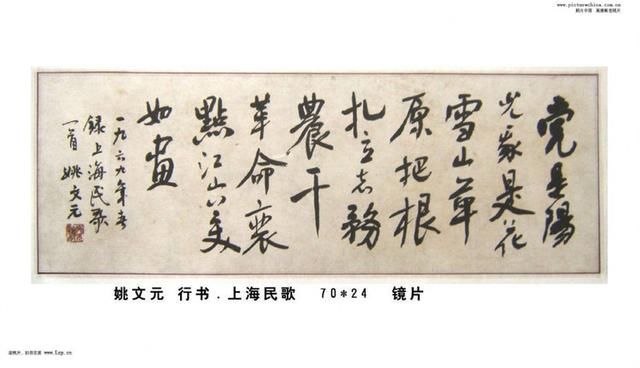 www.picturechina.com.cn
党是陽
光我是花
雪山草
原把根
扎立志務
農干
革命裝
點江山美
如畫
一九六九年春
録上海民歌
一首 姚文元
姚文元 行书.上海民歌 70*24 镜片
www.Lzp.cn